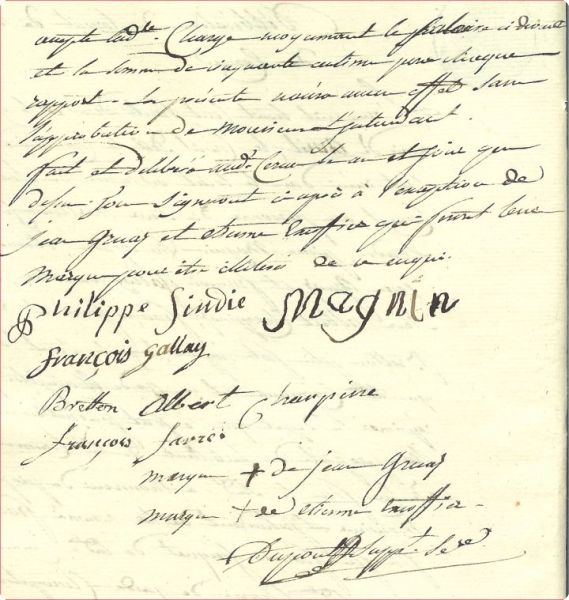 compte lad.te Charge moyennant le salaire ci dessus
et la somme de cinquante centime pour chaque
rapport. La présente n'aura aucun effet sans
l'approbation de Monsieur l'intendant.
fait et délibéré aud. Cerex le an et jour que
dessus Son Signeront ci après à l'exception de
jean Gruaz et etienne qui feront leur
Marque pour être illitéré de ce enqui.
Philippe Sindie Magnin
françois gallay
Bretton Albert Charpine
françois favre
marque + de jean Gruaz
marque + de etienne
Dupont Suppt. Sere